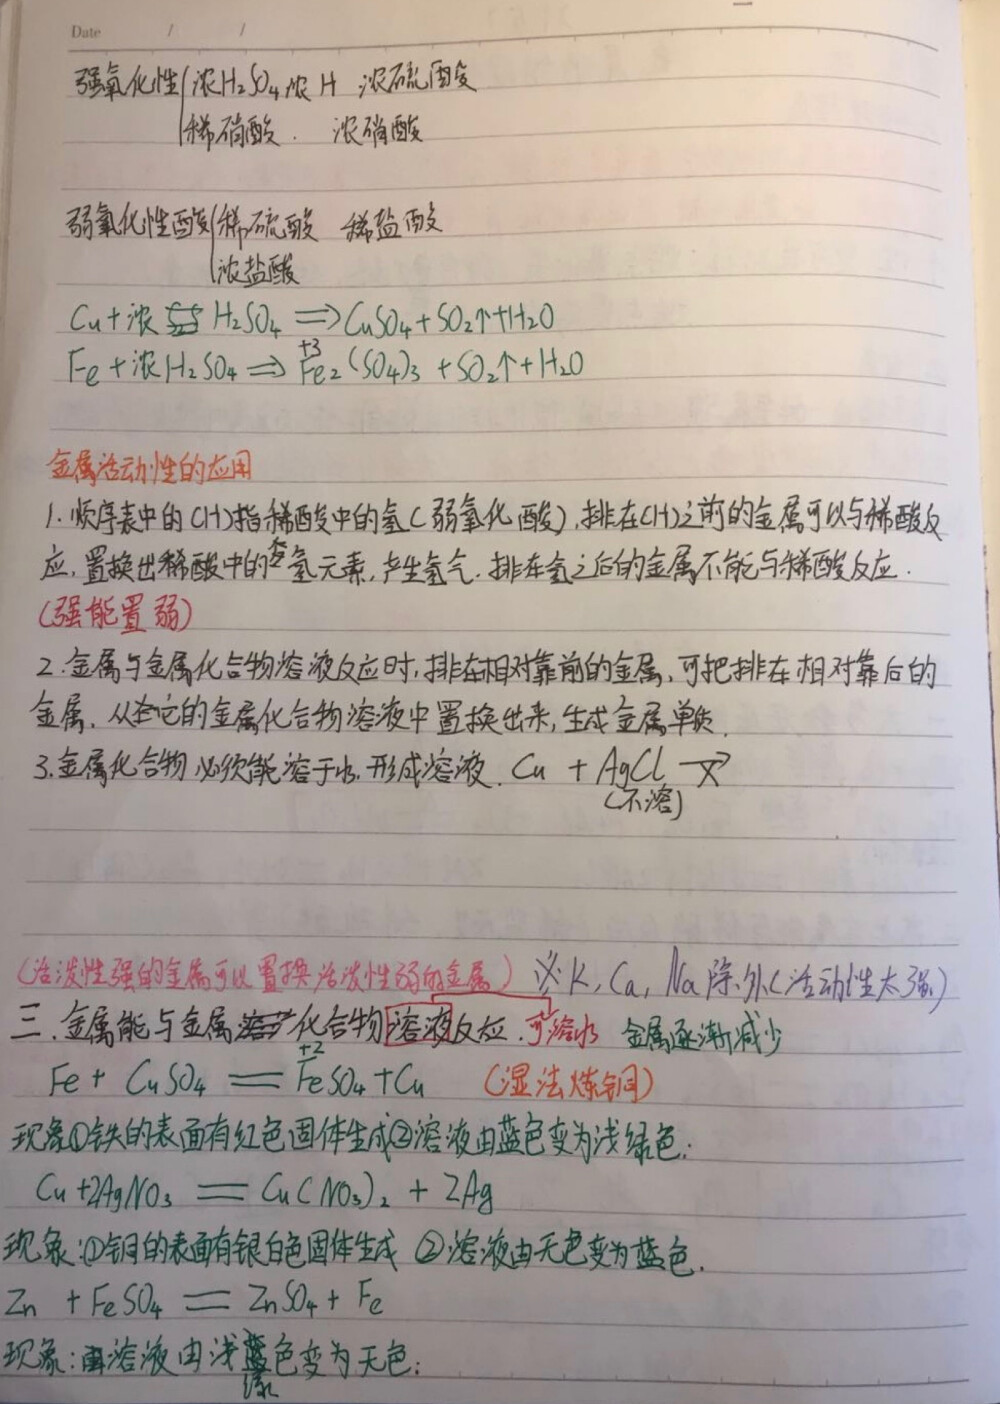 Date / /
强氧化性 浓H₂SO₄ 浓H 浓硫酸
稀硝酸. 浓硝酸
弱氧化性酸 稀硫酸 稀盐酸
浓盐酸
Cu+浓 H₂SO₄ ⇒ CuSO₄+SO₂↑+H₂O
+3
Fe+浓H₂SO₄ ⇒ Fe₂(SO₄)₃ +SO₂↑+H₂O
金属活动性的应用
1.顺序表中的(H)指稀酸中的氢(弱氧化酸),排在(H)之前的金属可以与稀酸反
应,置换出稀酸中的氢元素,产生氢气.排在氢之后的金属不能与稀酸反应.
(强能置弱)
2.金属与金属化合物溶液反应时,排在相对靠前的金属,可把排在相对靠后的
金属,从它的金属化合物溶液中置换出来,生成金属单质.
3.金属化合物必须能溶于水.形成溶液. Cu + AgCl ↛
(不溶)
(活泼性强的金属可以置换活泼性弱的金属) ※K,Ca,Na除外(活动性太强)
三.金属能与金属化合物溶液反应.可溶水 金属逐渐减少
+2
Fe + CuSO₄ == FeSO₄+Cu (湿法炼铜)
现象①铁的表面有红色固体生成②溶液由蓝色变为浅绿色;
Cu+2AgNO₃ == Cu(NO₃)₂ + 2Ag
现象:①铜的表面有银白色固体生成 ②溶液由无色变为蓝色.
Zn + FeSO₄ == ZnSO₄+ Fe
现象:溶液由浅色变为无色;
绿